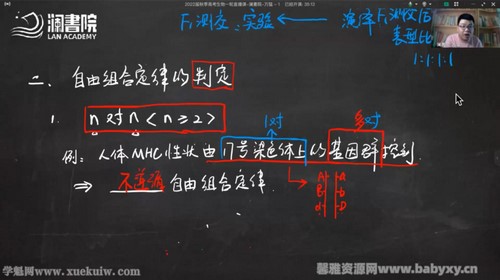 2022届秋季高考生物一轮直播课-澜書院-万猛 - 1
澜書院
LAN ACADEMY
F₁测交实验 ← 演绎F₁测交后
表型比
1:1:1:1
二、自由组合定律的判定
1. n对n <n≥2>
1对 多对
例: 人体MHC性状由17号染色体上的基因群控制
⇒ 不遵循自由组合定律.
A a
B b
d D
学魁网 www.xuekuiw.com
馨雅资源网 www.babyxy.cn